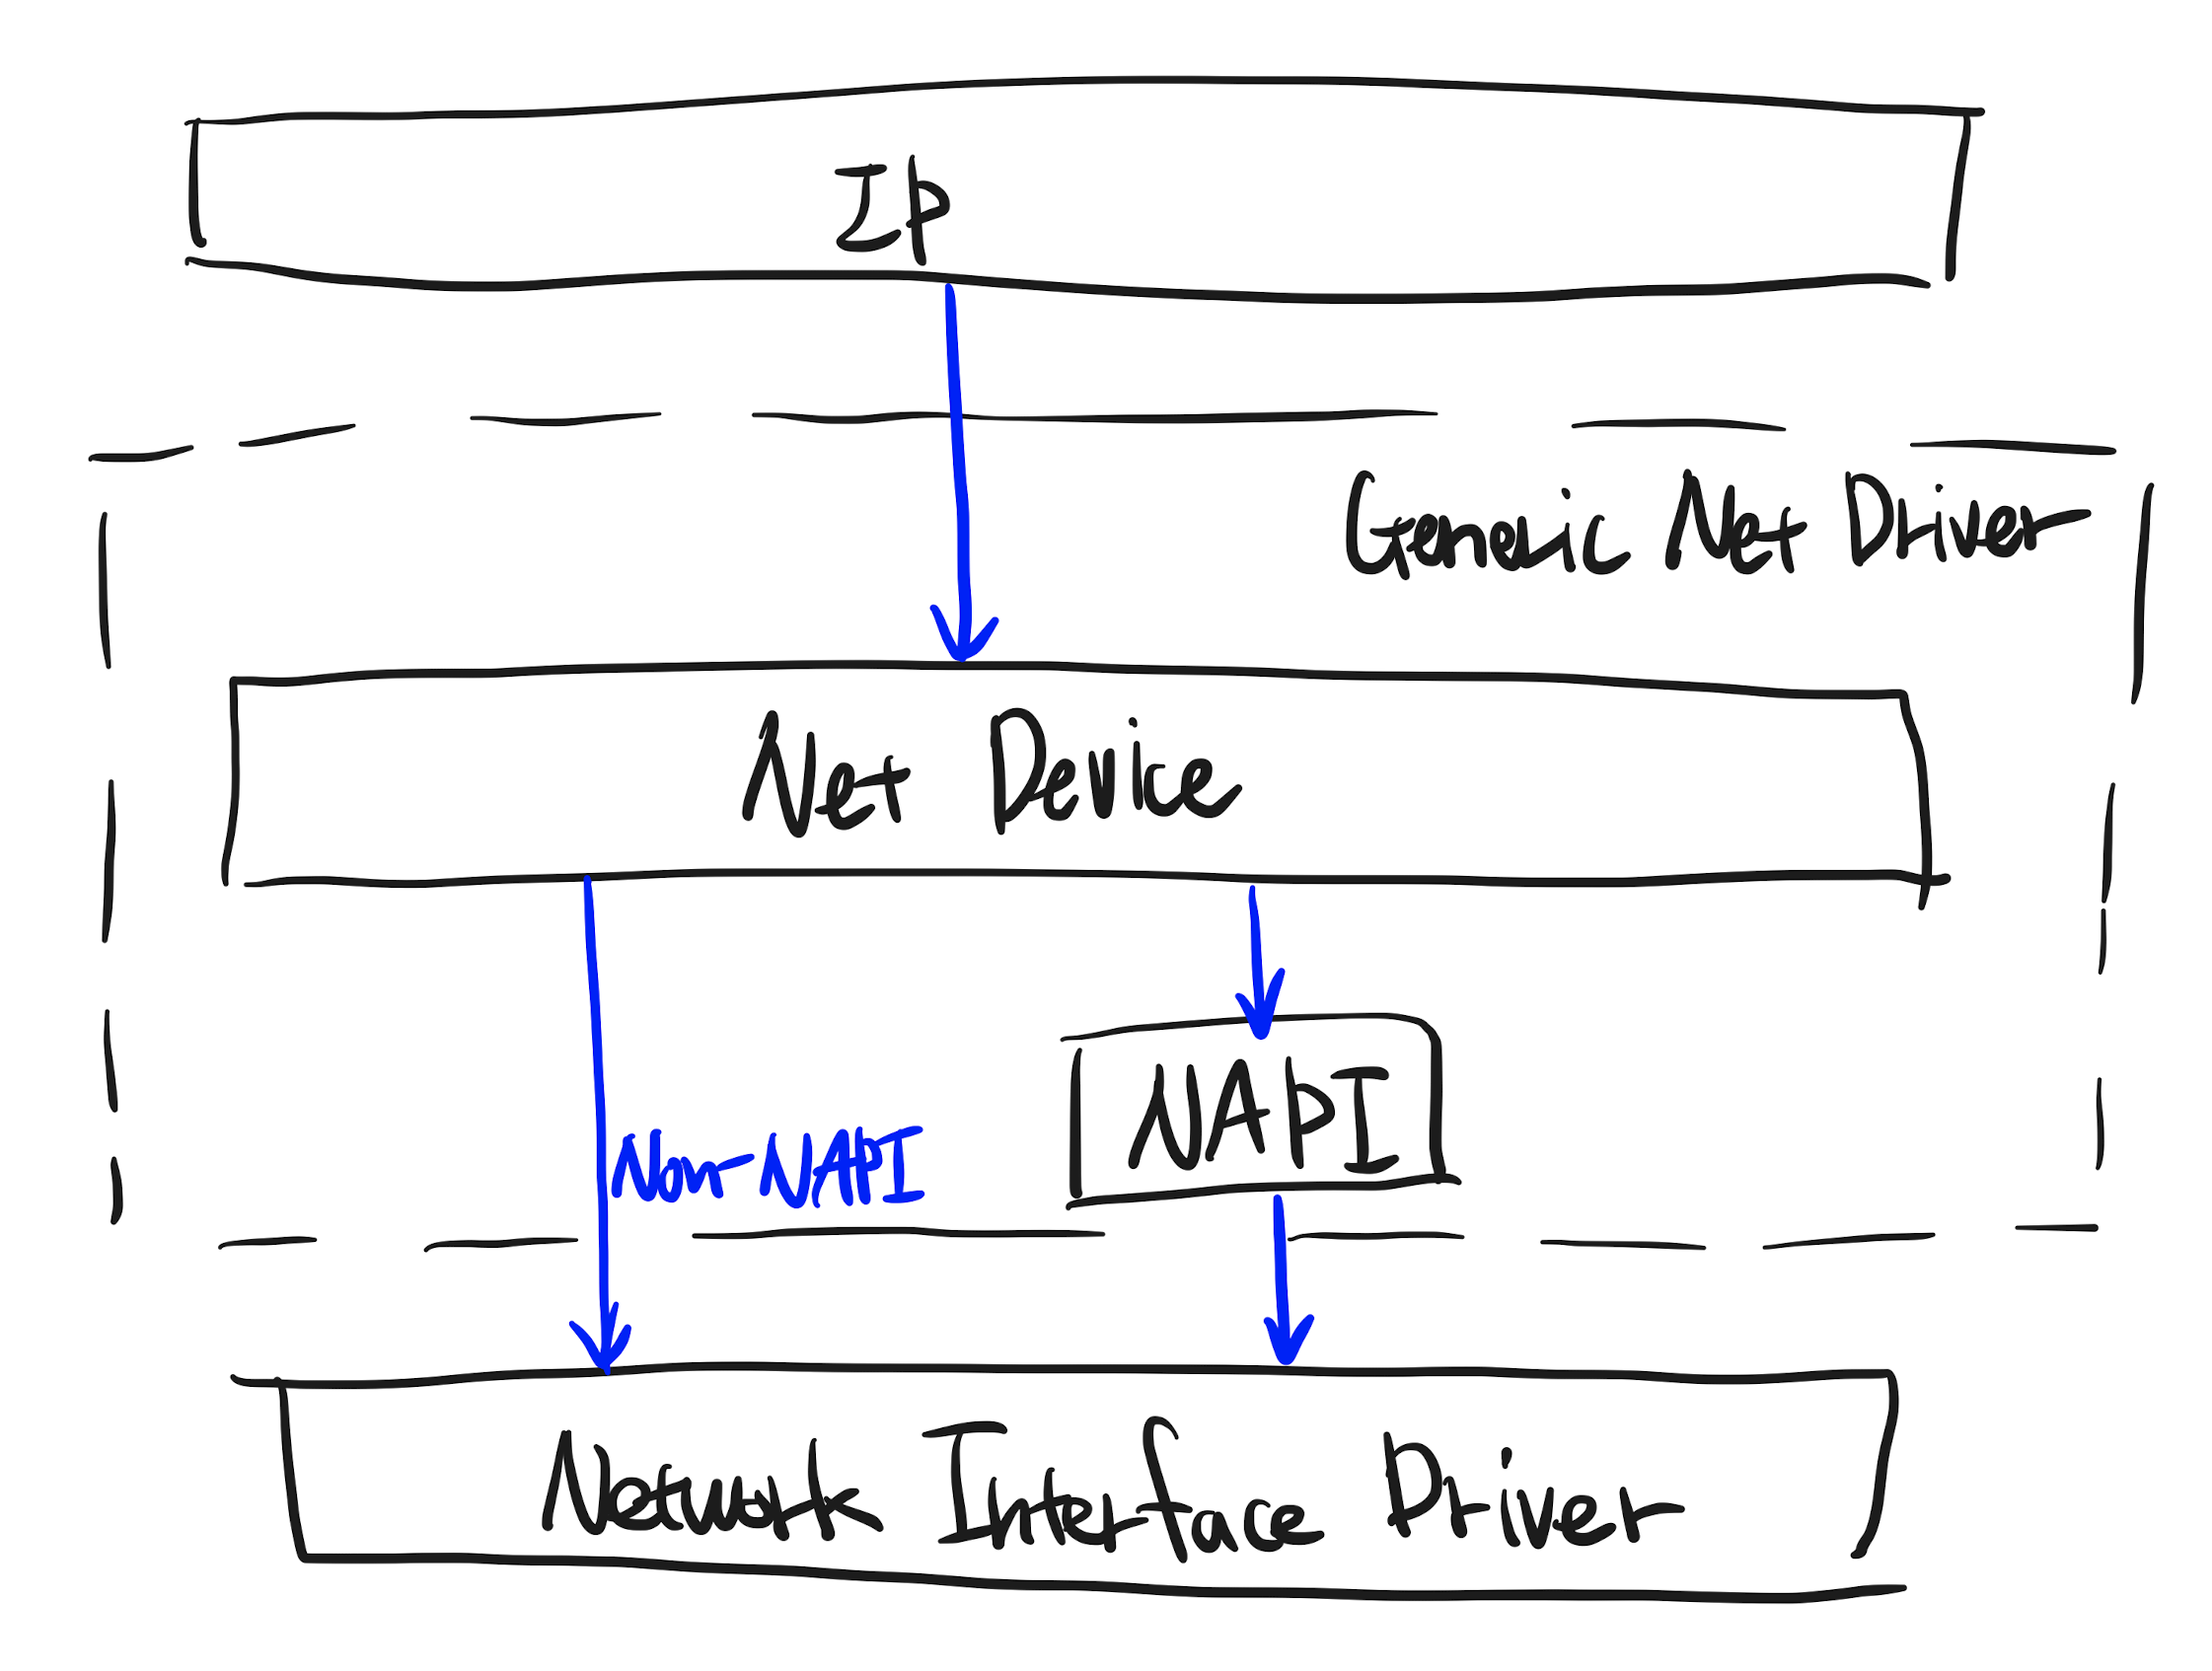 IP
Generic Net Driver
Net Device
NAPI
Non-NAPI
Network Interface Driver